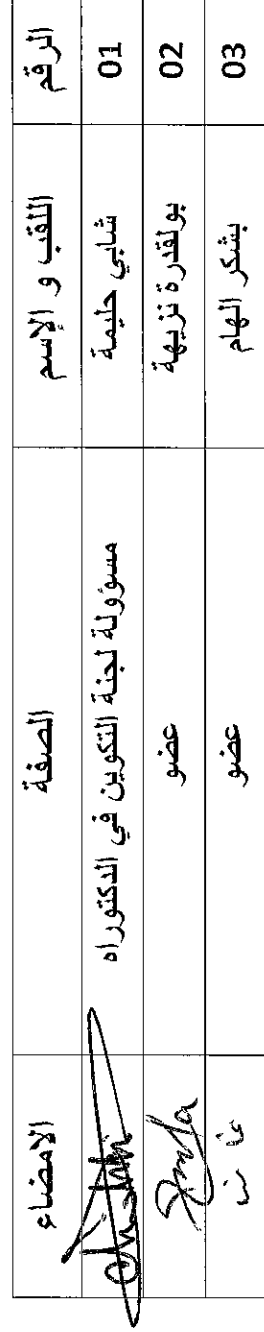 الرقم اللقب و الإسم الصفة الامضاء
01 شابي حليمة مسؤولة لجنة التكوين في الدكتوراه
02 بولقدرة نزيهة عضو
03 بشكر الهام عضو